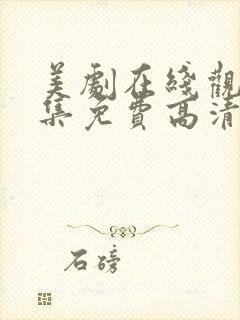 美劇在綫觀
集免費高清
石磅